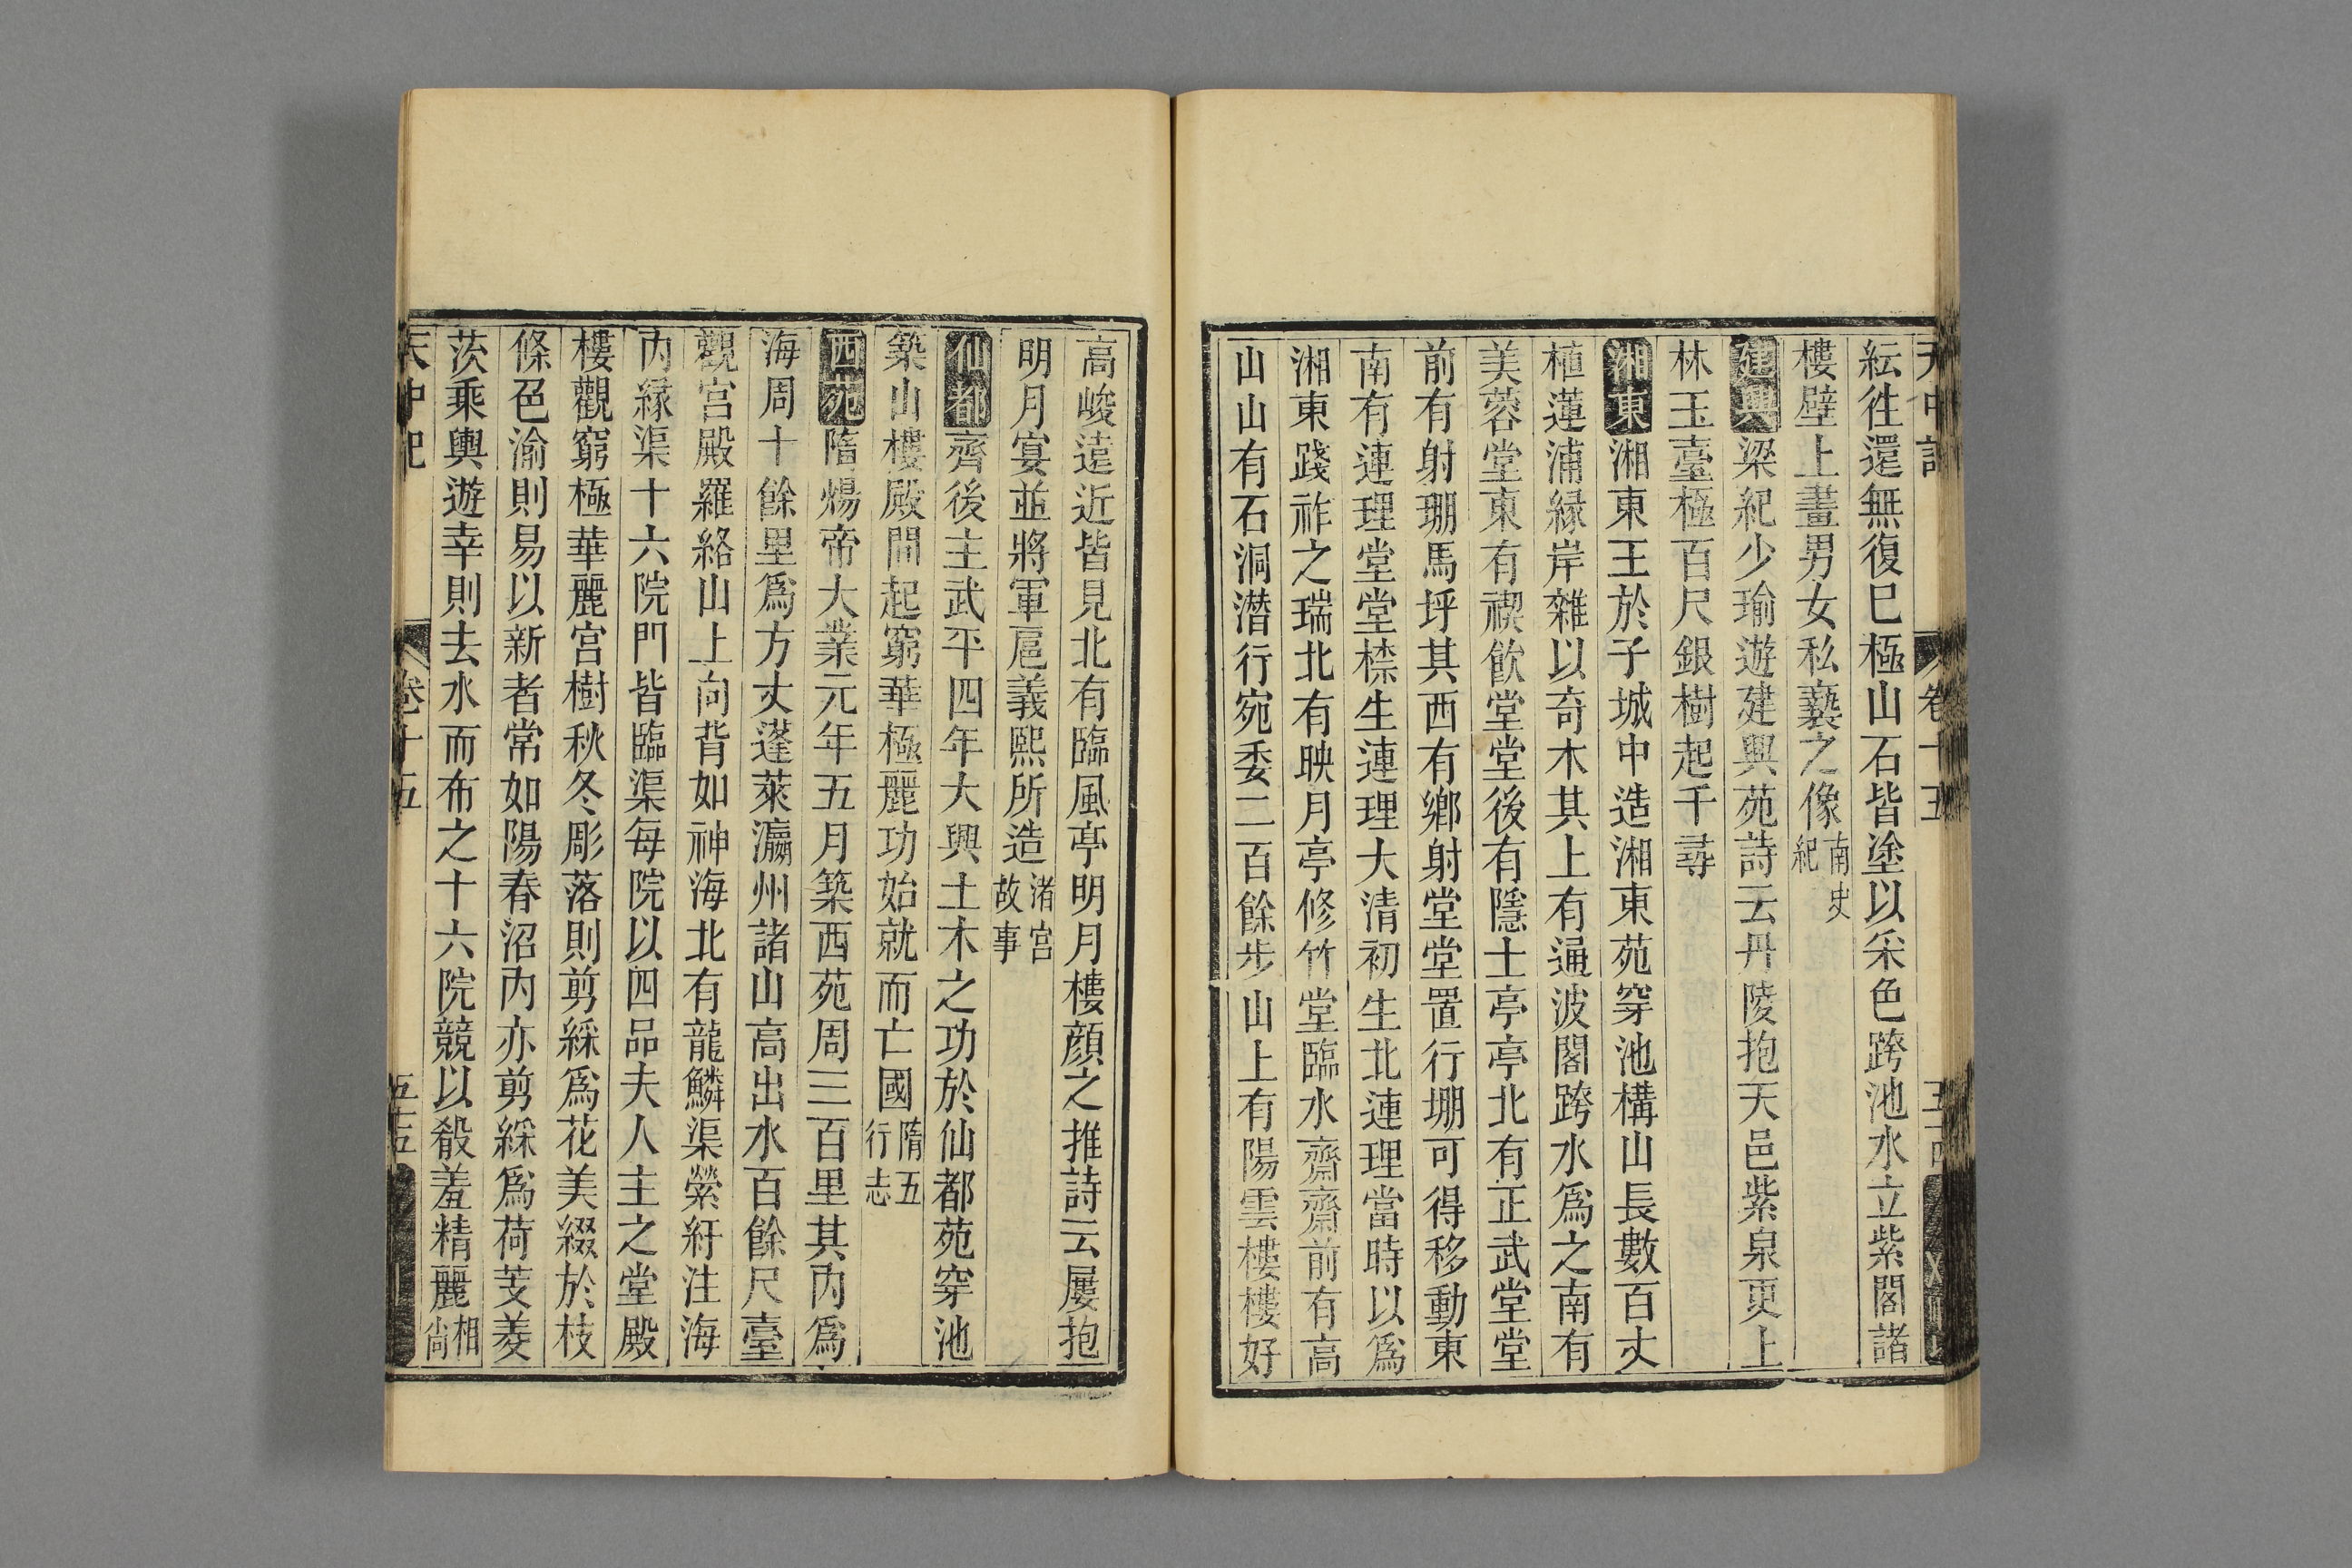 天中記 卷十五
紜徃還無復巳極山石皆塗以采色跨池水立紫閣諸
樓壁上畫男女私褻之像南史紀
建興梁紀少瑜遊建興苑詩云丹陵抱天邑紫泉更上
林玉臺極百尺銀樹起千尋
湘東湘東王於子城中造湘東苑穿池構山長數百丈
植蓮浦緣岸雜以奇木其上有通波閣跨水爲之南有
美蓉堂東有禊飮堂堂後有隱士亭亭北有正武堂堂
前有射堋馬埓其西有鄉射堂堂置行堋可得移動東
南有連理堂堂㮈生連理大清初生北連理當時以爲
湘東踐祚之瑞北有映月亭修竹堂臨水齋齋前有高
山山有石洞潛行宛委二百餘步山上有陽雲樓樓好
高峻遠近皆見北有臨風亭明月樓顔之推詩云屢抱
明月宴並將軍扈義熙所造渚宮故事
仙都齊後主武平四年大興土木之功於仙都苑穿池
築山樓殿間起窮華極麗功始就而亡國隋五行志
西苑隋煬帝大業元年五月築西苑周三百里其內爲
海周十餘里爲方丈蓬萊瀛州諸山高出水百餘尺臺
觀宮殿羅絡山上向背如神海北有龍鱗渠縈紆注海
內緣渠十六院門皆臨渠每院以四品夫人主之堂殿
樓觀窮極華麗宮樹秋冬彫落則剪綵爲花美綴於枝
條色渝則易以新者常如陽春沼內亦剪綵爲荷芰菱
茨乘輿遊幸則去水而布之十六院競以殽羞精麗相尙
天中記 卷十五 五五